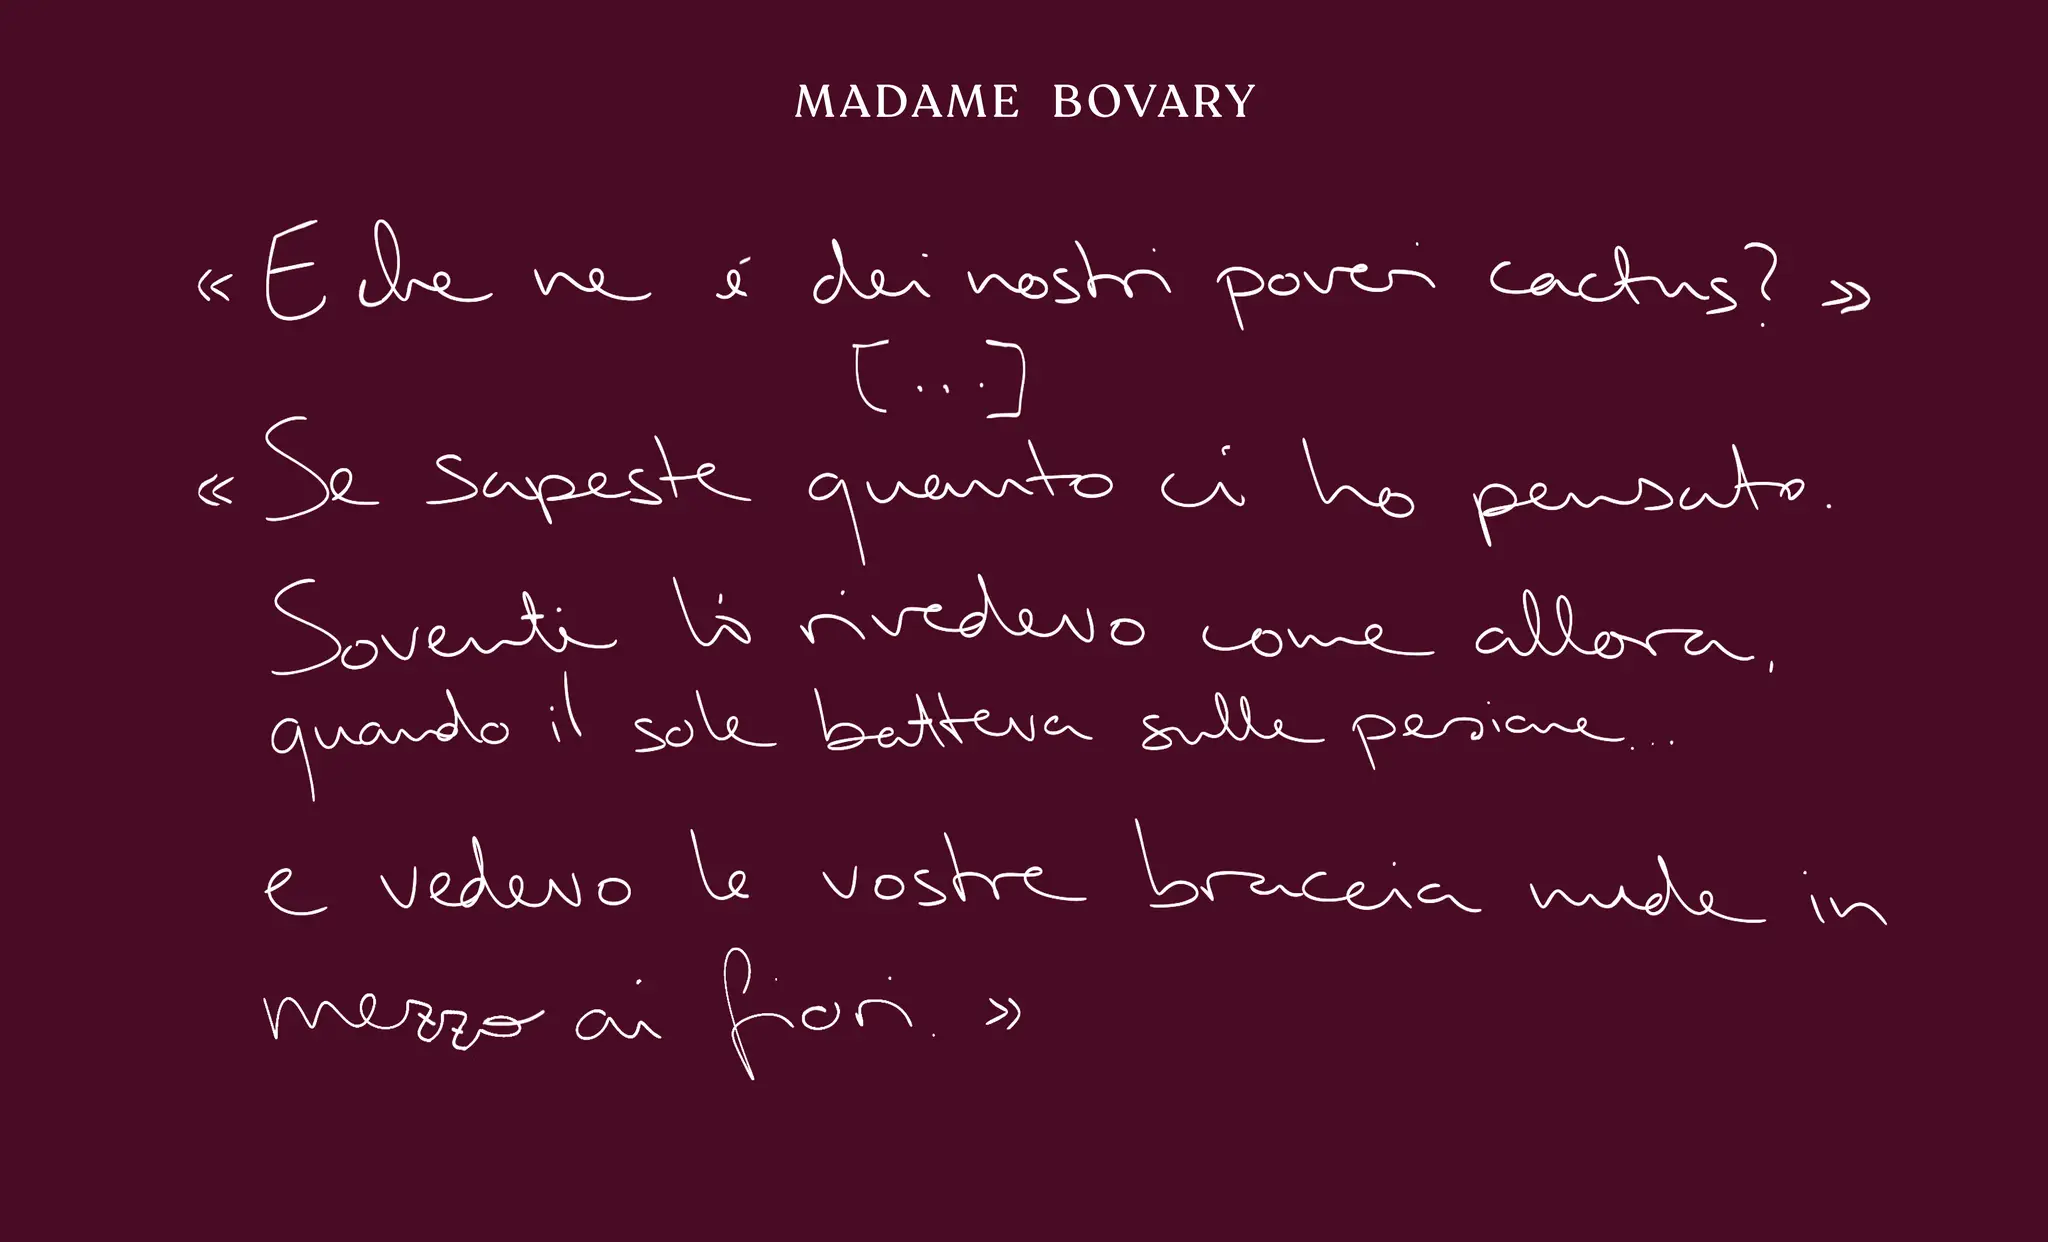 MADAME BOVARY
« E che ne é dei nostri poveri cactus? »
[...]
« Se sapeste quanto ci ho pensato.
Sovente li rivedevo come allora,
quando il sole batteva sulle persiane...
e vedevo le vostre braccia nude in
mezzo ai fiori. »